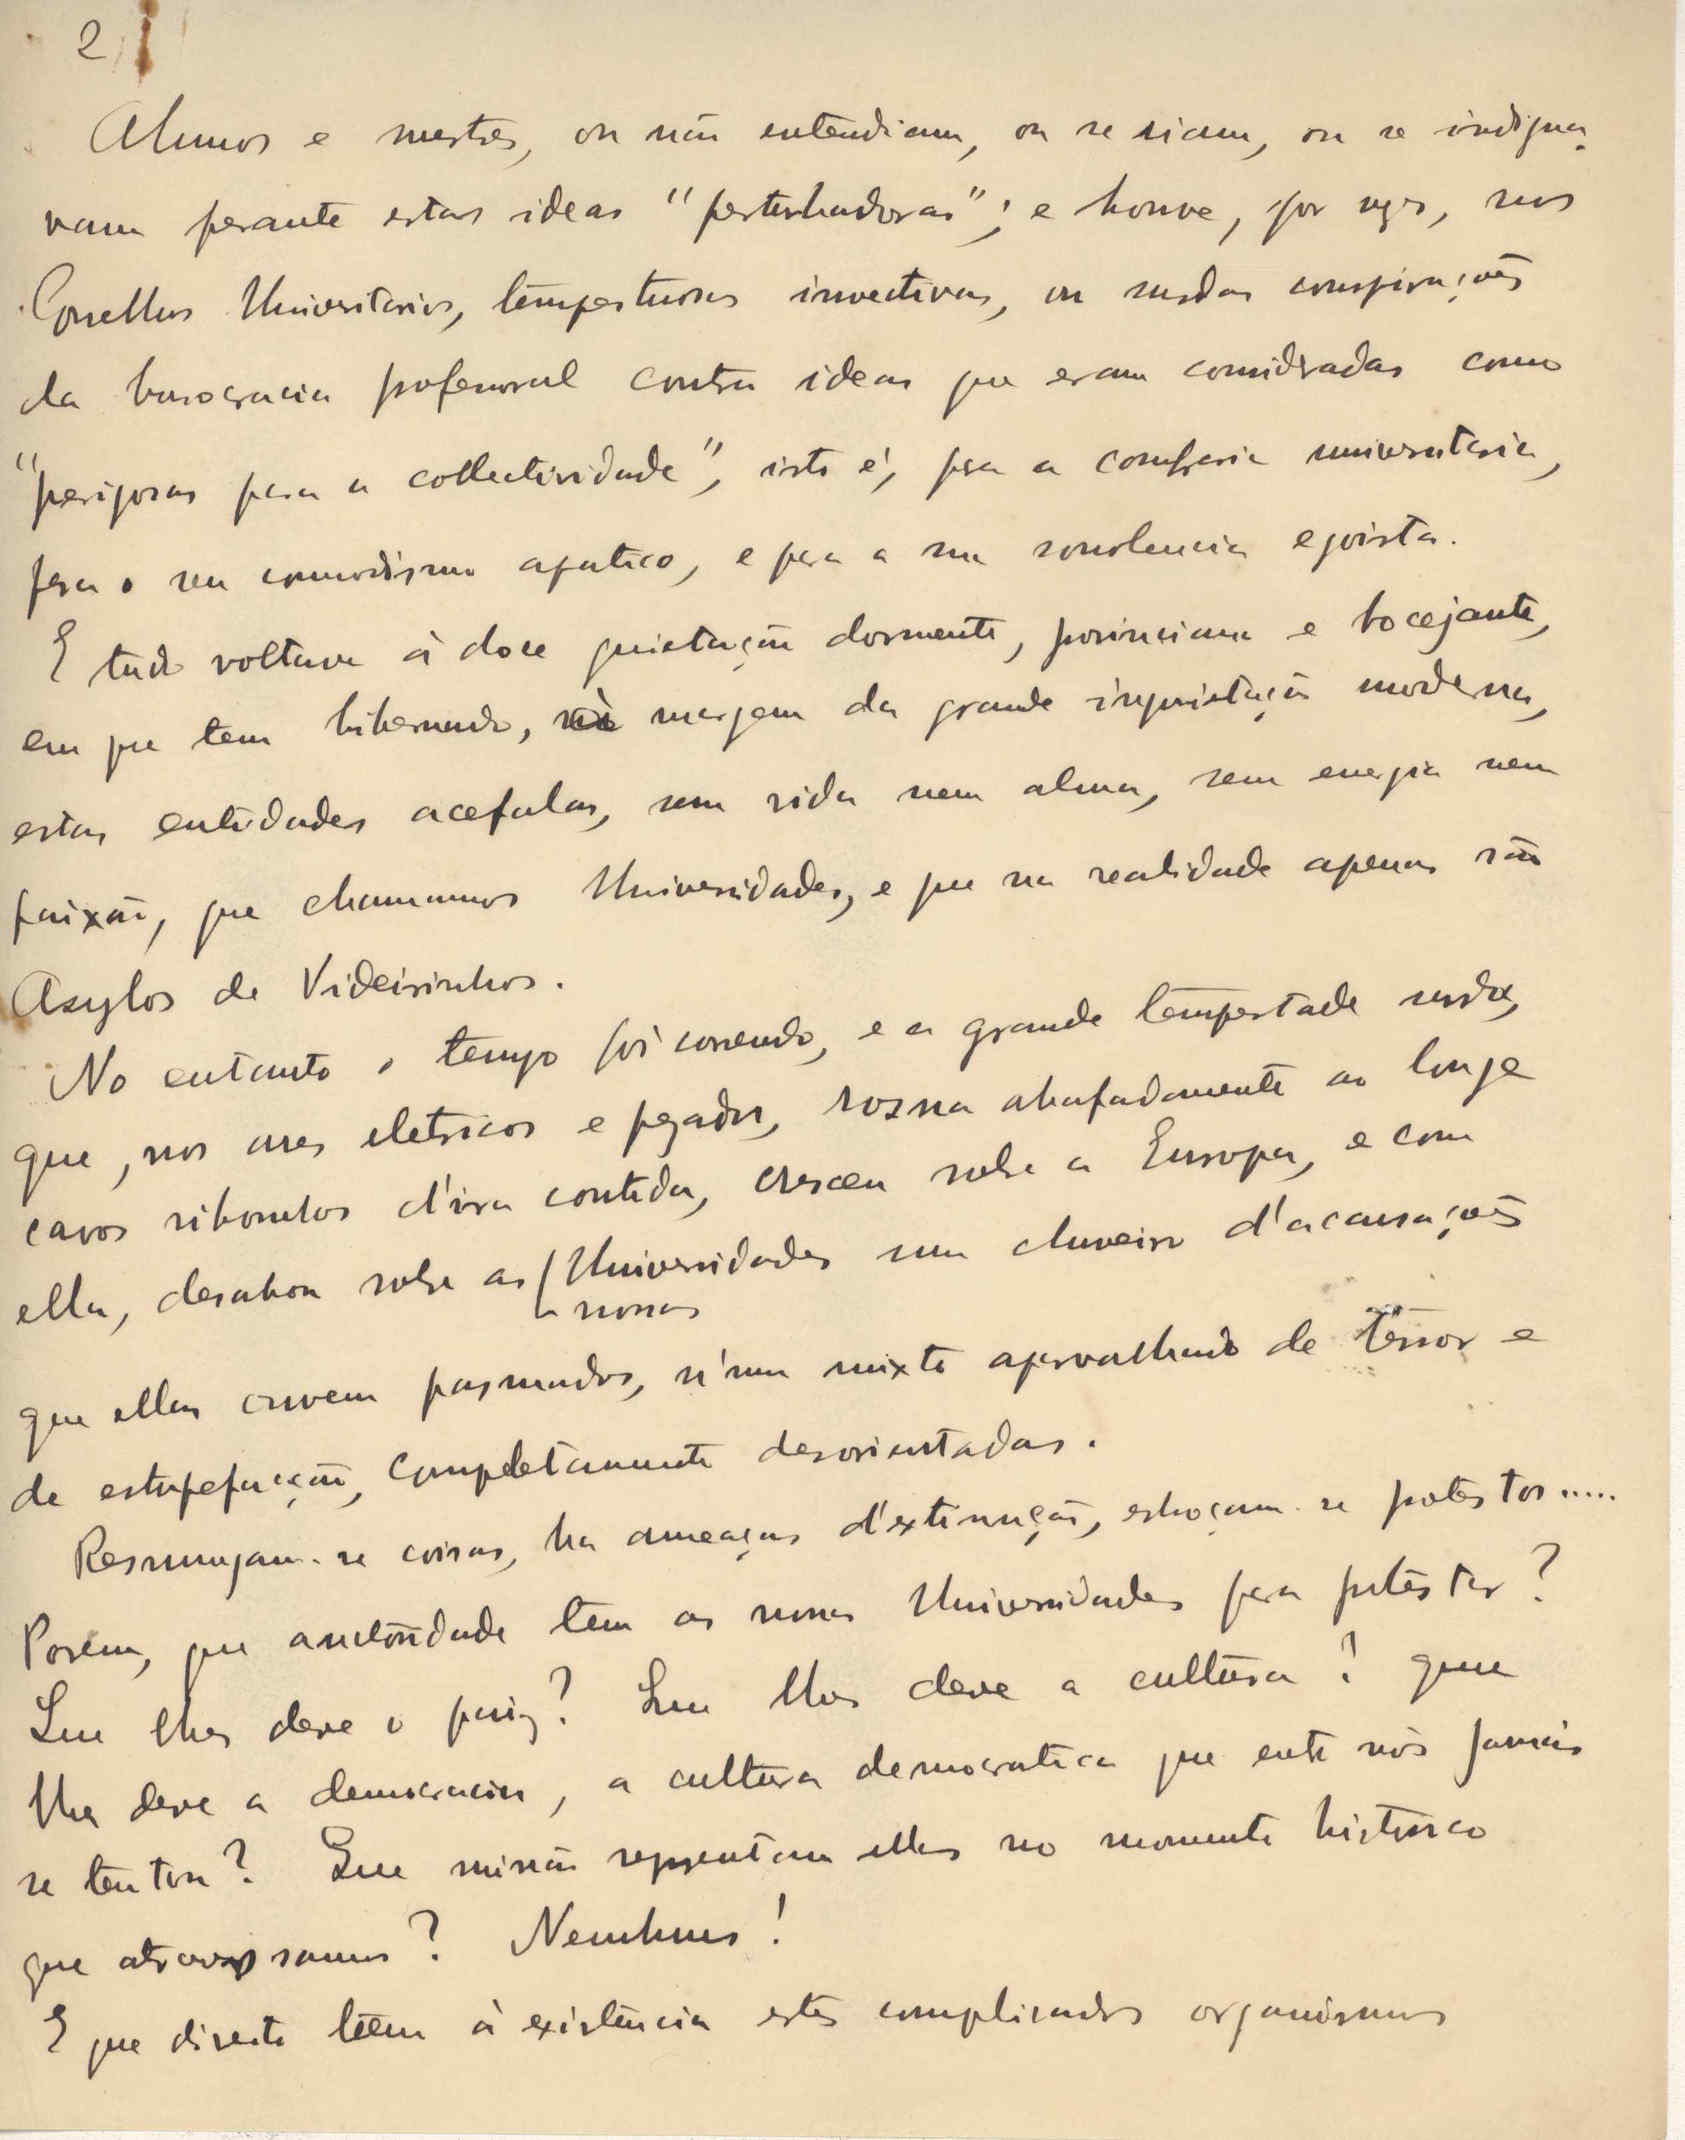 2
Alumnos e mestres, ou não entendiam, ou se riam, ou se indigna-
vam perante estas ideas "perturbadoras"; e houve, por vezes, nos
Conselhos Universitarios, tempestuosas invectivas, ou surdas conspirações
da burocracia professoral contra ideas que eram consideradas como
"perigosas para a collectividade", isto é, para a confraria universitaria,
para o seu comodismo apatico, e para a sua sonolencia egoista.
E tudo voltava á doce quietação dormente, provinciana e bocejante,
em que tem hibernado, á margem da grande inquietação moderna,
estas entidades acefalas, sem vida nem alma, sem energia nem
paixão, que chamamos Universidades, e que na realidade apenas são
Asylos de Videirinhos.
No entanto o tempo foi correndo, e a grande tempestade surda,
que, nos ares eletricos e pezados, rosna abafadamente ao longe
cavos ribombos d'ira contida, cresceu sobre a Europa, e com
ella, desabou sobre as Universidades um chuveiro d'acausações
nossas
que ellas ouvem pasmadas, n'um mixto aparvalhado de terror e
de estupefacção, completamente desorientadas.
Resmungam-se coisas, ha ameaças d'extinução, esboçam-se protestos.....
Porem, que auctoridade tem as nossas Universidades para protestar?
Que lhes deve o paiz? Que lhes deve a cultura? Que
lhes deve a democracia, a cultura democratica que entre nós jamais
se tentou? Que missão representam ellas no momento historico
que atravessamos? Nenhuma!
E que direito teem á existencia estes complicados organismos